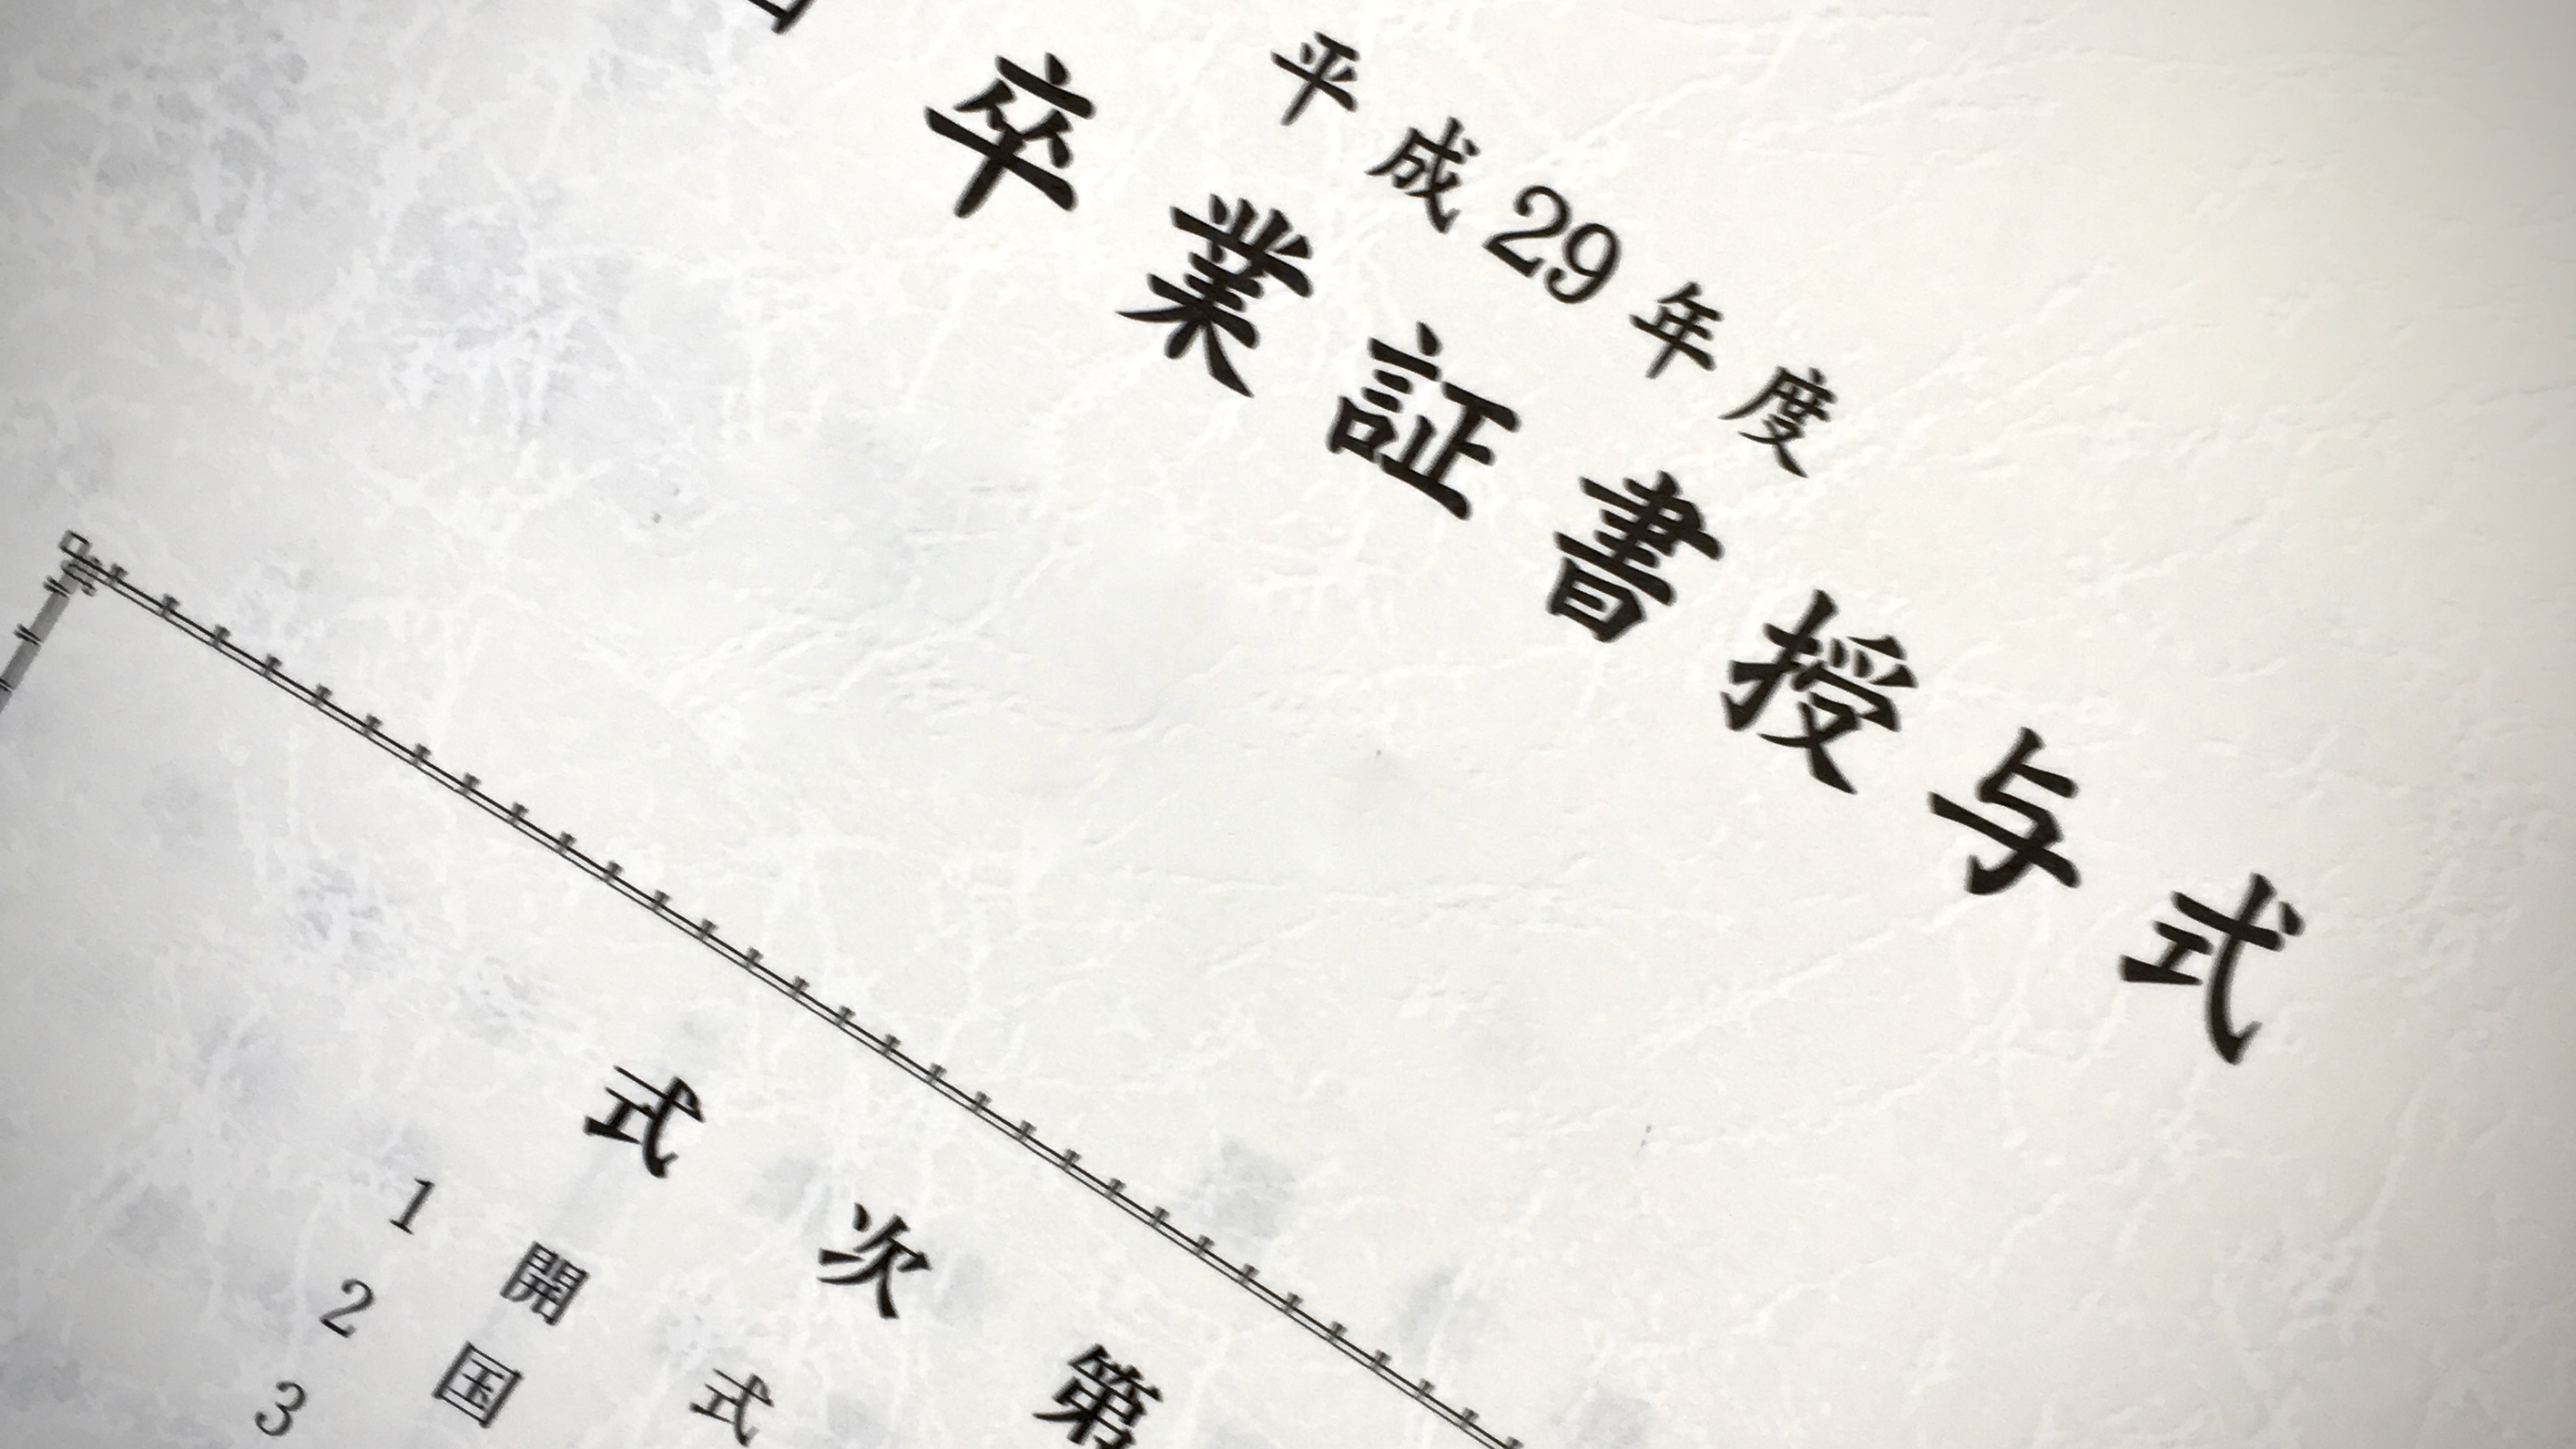 平成29年度
卒業証書授与式
式次第
1 開式
2 国
3